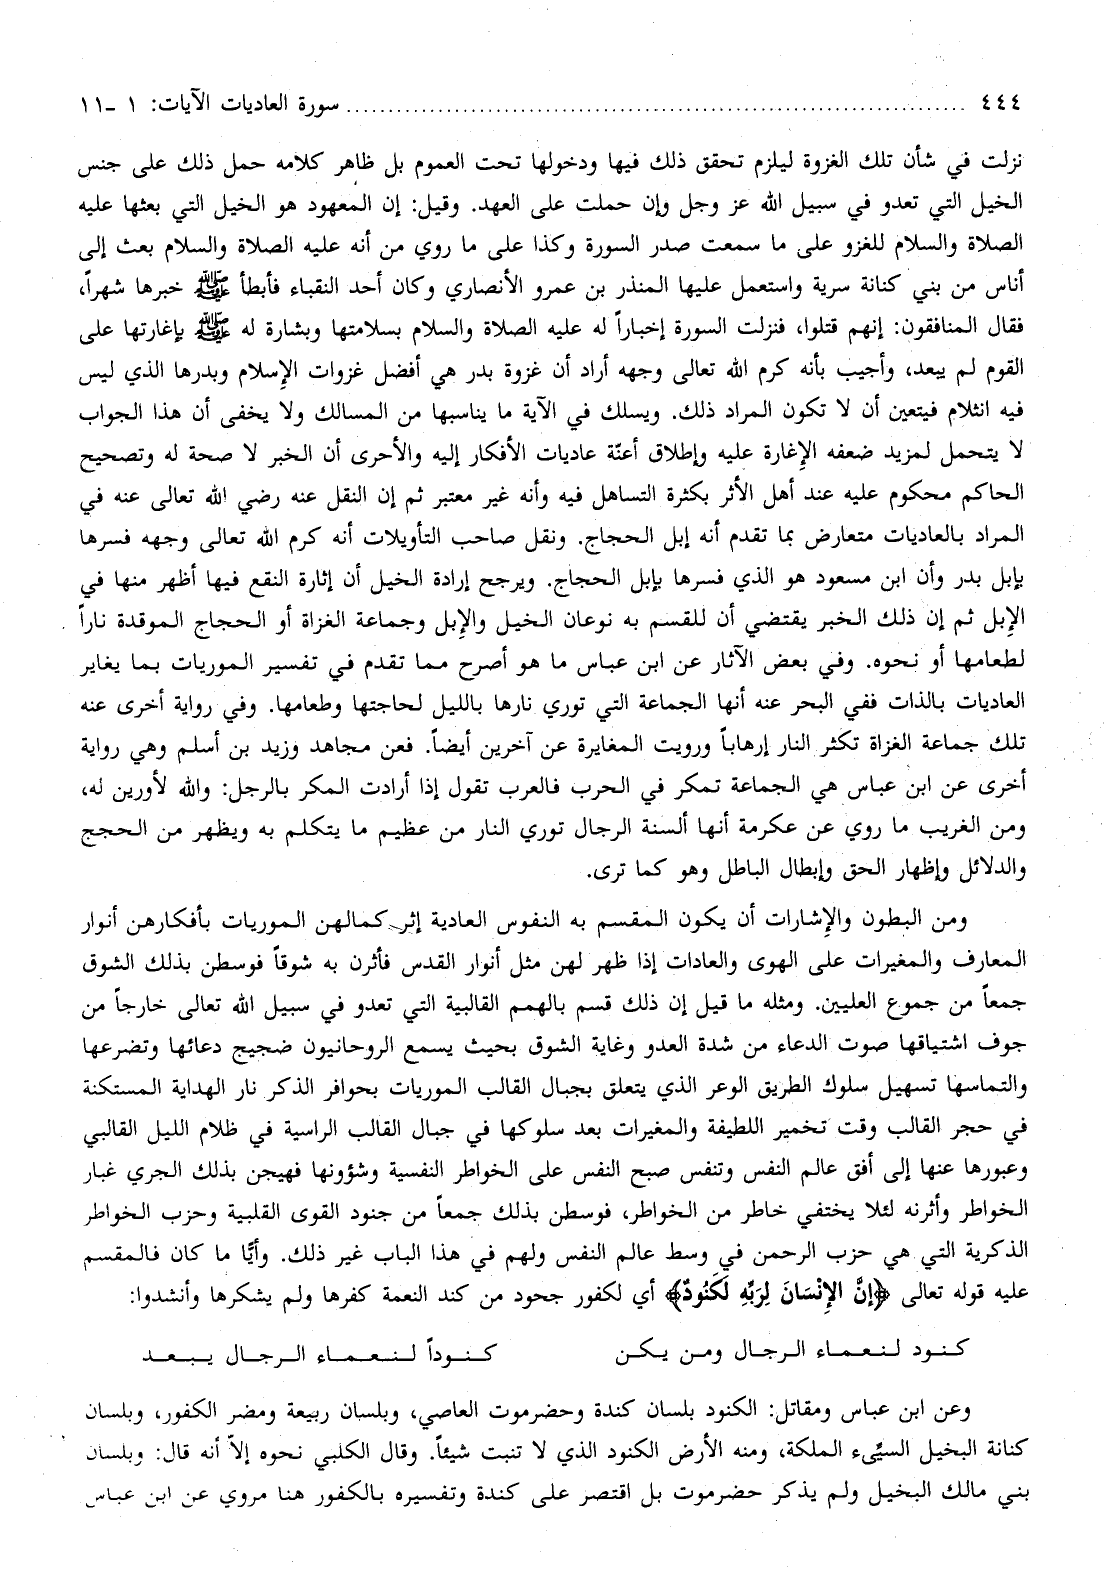 ٤٤٤ ........ سورة العاديات الآيات: ١ -١١
نزلت في شأن تلك الغزوة ليلزم تحقق ذلك فيها ودخولها تحت العموم بل ظاهر كلامه حمل ذلك على جنس
الخيل التي تعدو في سبيل الله عز وجل وإن حملت على العهد. وقيل: إن المعهود هو الخيل التي بعثها عليه
الصلاة والسلام للغزو على ما سمعت صدر السورة وكذا على ما روي من أنه عليه الصلاة والسلام بعث إلى
أناس من بني كنانة سرية واستعمل عليها المنذر بن عمرو الأنصاري وكان أحد النقباء فأبطأ ﷺ خبرها شهراً،
فقال المنافقون: إنهم قتلوا، فنزلت السورة إخباراً له عليه الصلاة والسلام بسلامتها وبشارة له ﷺ بإغارتها على
القوم لم يبعد، وأجيب بأنه كرم الله تعالى وجهه أراد أن غزوة بدر هي أفضل غزوات الإسلام وبدرها الذي ليس
فيه انثلام فيتعين أن لا تكون المراد ذلك. ويسلك في الآية ما يناسبها من المسالك ولا يخفى أن هذا الجواب
لا يتحمل لمزيد ضعفه الإغارة عليه وإطلاق أعنّة عاديات الأفكار إليه والأحرى أن الخبر لا صحة له وتصحيح
الحاكم محكوم عليه عند أهل الأثر بكثرة التساهل فيه وأنه غير معتبر ثم إن النقل عنه رضي الله تعالى عنه في
المراد بالعاديات متعارض بما تقدم أنه إبل الحجاج. ونقل صاحب التأويلات أنه كرم الله تعالى وجهه فسرها
بإبل بدر وأن ابن مسعود هو الذي فسرها بإبل الحجاج. ويرجح إرادة الخيل أن إثارة النقع فيها أظهر منها في
الإبل ثم إن ذلك الخبر يقتضي أن للقسم به نوعان الخيل والإبل وجماعة الغزاة أو الحجاج الموقدة ناراً
لطعامها أو نحوه. وفي بعض الآثار عن ابن عباس ما هو أصرح مما تقدم في تفسير الموريات بما يغاير
العاديات بالذات ففي البحر عنه أنها الجماعة التي توري نارها بالليل لحاجتها وطعامها. وفي رواية أخرى عنه
تلك جماعة الغزاة تكثر النار إرهاباً ورويت المغايرة عن آخرين أيضاً. فعن مجاهد وزيد بن أسلم وهي رواية
أخرى عن ابن عباس هي الجماعة تمكر في الحرب فالعرب تقول إذا أرادت المكر بالرجل: والله لأورين له،
ومن الغريب ما روي عن عكرمة أنها ألسنة الرجال توري النار من عظيم ما يتكلم به ويظهر من الحجج
والدلائل وإظهار الحق وإبطال الباطل وهو كما ترى.
ومن البطون والإشارات أن يكون المقسم به النفوس العادية إثر كمالهن الموريات بأفكارهن أنوار
المعارف والمغيرات على الهوى والعادات إذا ظهر لهن مثل أنوار القدس فأثرن به شوقاً فوسطن بذلك الشوق
جمعاً من جموع العليين. ومثله ما قيل إن ذلك قسم بالهمم القالبية التي تعدو في سبيل الله تعالى خارجاً من
جوف اشتياقها صوت الدعاء من شدة العدو وغاية الشوق بحيث يسمع الروحانيون ضجيج دعائها وتضرعها
والتماسها تسهيل سلوك الطريق الوعر الذي يتعلق بجبال القالب الموريات بحوافر الذكر نار الهداية المستكنة
في حجر القالب وقت تخمير اللطيفة والمغيرات بعد سلوكها في جبال القالب الراسية في ظلام الليل القالبي
وعبورها عنها إلى أفق عالم النفس وتنفس صبح النفس على الخواطر النفسية وشؤونها فهيجن بذلك الجري غبار
الخواطر وأثرنه لئلا يختفي خاطر من الخواطر، فوسطن بذلك جمعاً من جنود القوى القلبية وحزب الخواطر
الذكرية التي هي حزب الرحمن في وسط عالم النفس ولهم في هذا الباب غير ذلك. وأيًّا ما كان فالمقسم
عليه قوله تعالى ﴿إِنَّ الإِنْسَانَ لِرَبِّهِ لَكَنُودٌ﴾ أي لكفور جحود من كند النعمة كفرها ولم يشكرها وأنشدوا:
كنود لنعماء الرجال ومن يكن كنوداً لنعماء الرجال يبعد
وعن ابن عباس ومقاتل: الكنود بلسان كندة وحضرموت العاصي، وبلسان ربيعة ومضر الكفور، وبلسان
كنانة البخيل السيِّىء الملكة، ومنه الأرض الكنود الذي لا تنبت شيئاً. وقال الكلبي نحوه إلاّ أنه قال: وبلسان
بني مالك البخيل ولم يذكر حضرموت بل اقتصر على كندة وتفسيره بالكفور هنا مروي عن ابن عباس